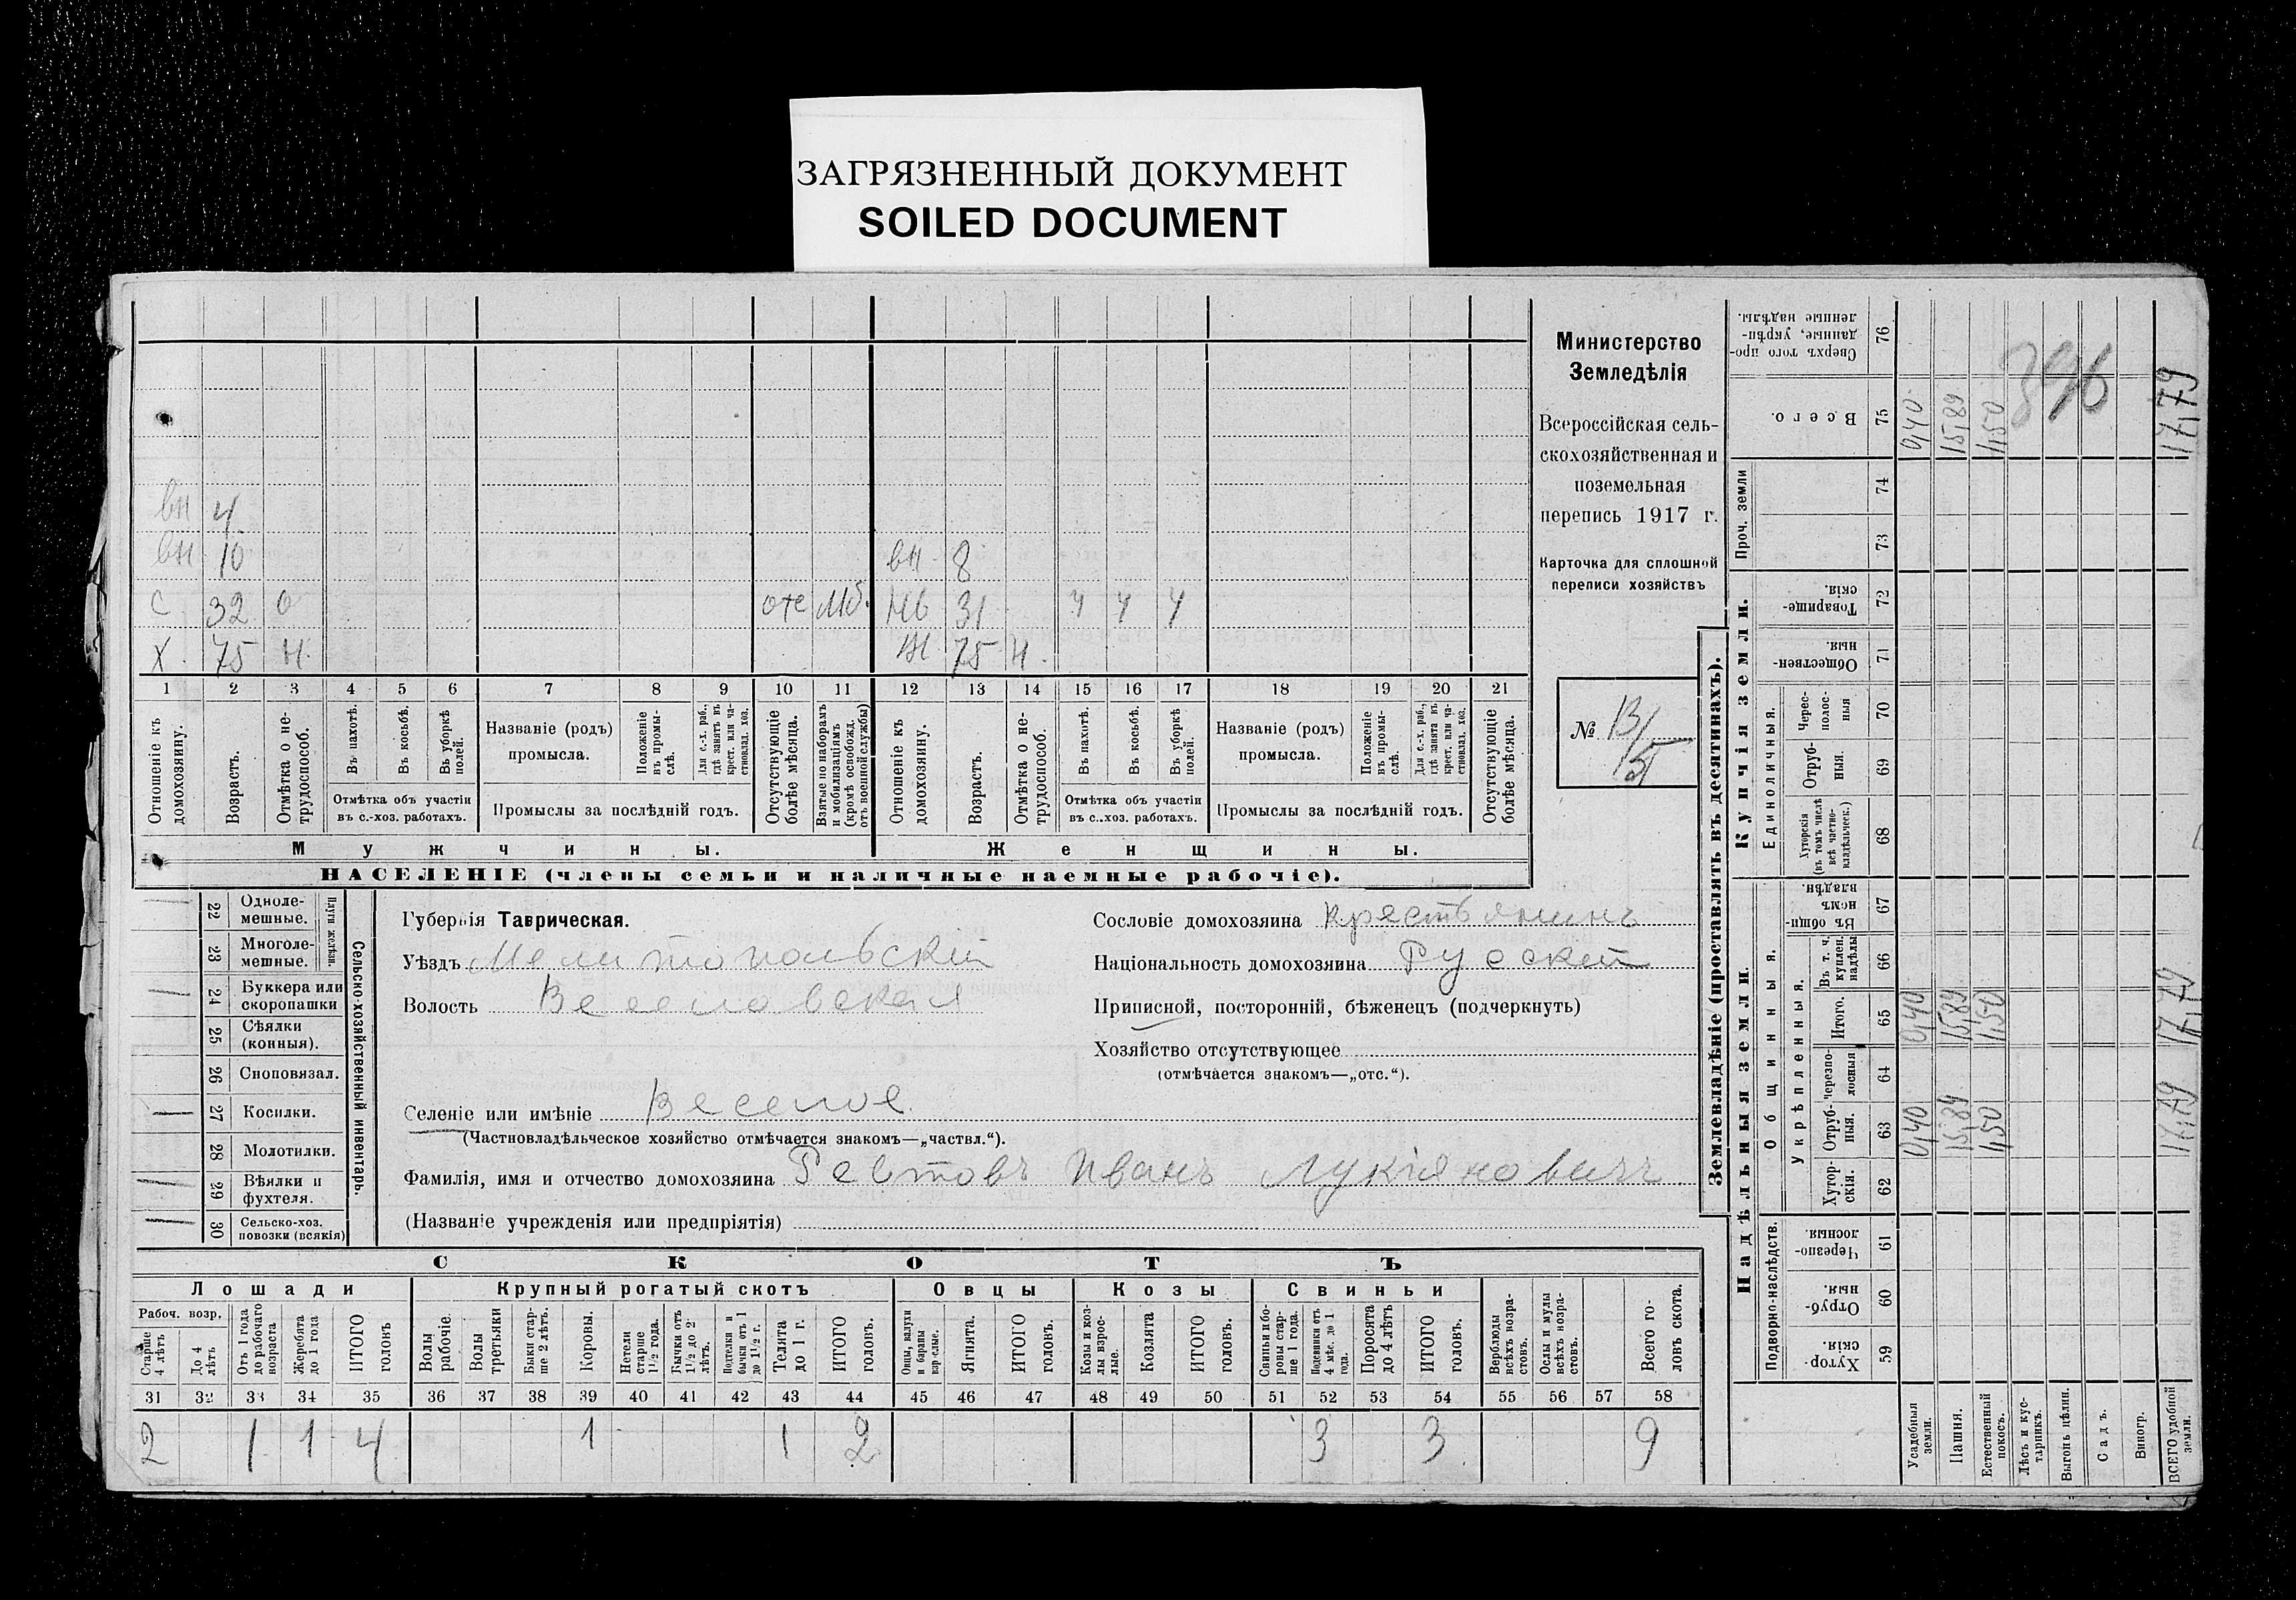 ЗАГРЯЗНЕННЫЙ ДОКУМЕНТ
SOILED DOCUMENT
вн 4
вн 10 вн 8
с 32 0 отс Мб. нв 31 ч ч ч
х. 75 н. ж 75 н.
1 2 3 4 5 6 7 8 9 10 11 12 13 14 15 16 17 18 19 20 21
Отношеніе къ домохозяину.
Возрастъ.
Отмѣтка о не-трудоспособ.
Въ пахотѣ.
Въ косьбѣ.
Въ уборкѣ полей.
Отмѣтка объ участіи
въ с.-хоз. работахъ.
Названіе (родъ)
промысла.
Положеніе въ промы-слѣ.
Для с.-х. раб., гдѣ занятъ въ крест. или ча-стновлад. хоз.
Промыслы за послѣдній годъ.
Отсутствующіе болѣе мѣсяца.
Взятые по наборамъ и мобилизаціямъ (кромѣ освобожд. отъ военной службы)
Отношеніе къ домохозяину.
Возрастъ.
Отмѣтка о не-трудоспособ.
Въ пахотѣ.
Въ косьбѣ.
Въ уборкѣ полей.
Отмѣтка объ участіи
въ с..хоз. работахъ.
Названіе (родъ)
промысла.
Положеніе въ промы-слѣ.
Для с.-х. раб., гдѣ занята въ крест. или ча-стновлад. хоз.
Промыслы за послѣдній годъ.
Отсутствующіе болѣе мѣсяца.
Мужчины. Женщины.
НАСЕЛЕНІЕ (члены семьи и наличные наемные рабочіе).
Министерство
Земледѣлія
Всероссійская сель-
скохозяйственная и
поземельная
перепись 1917 г.
Карточка для сплошной
переписи хозяйствъ
№ 13/
Сельско-хозяйственный инвентарь.
Плуги желѣзн.
22 Одноле-мешные.
23 Многоле-мешные.
24 Буккера или скоропашки
25 Сѣялки (конныя).
26 Сноповязал.
27 Косилки.
28 Молотилки.
29 Вѣялки и фухтеля.
30 Сельско-хоз. повозки (всякія)
Губернія Таврическая.
Уѣздъ Мелитопольскій
Волость Веселовская
Селеніе или имѣніе Веселое
(Частновладѣльческое хозяйство отмѣчается знакомъ—„частвл.“).
Фамилія, имя и отчество домохозяина Реутовъ Иванъ Лукіяновичъ
(Названіе учрежденія или предпріятія)
Сословіе домохозяина крестьянинъ
Національность домохозяина Русскій
Приписной, посторонній, бѣженецъ (подчеркнуть)
Хозяйство отсутствующее
(отмѣчается знакомъ—„отс.“).
СКОТЪ
Лошади Крупный рогатый скотъ Овцы Козы Свиньи
Рабоч. возр.
Старше 4 лѣтъ
До 4 лѣтъ
Отъ 1 года до рабочаго возраста
Жеребята до 1 года
ИТОГО головъ
Волы рабочіе.
Волы третьяки
Быки стар-ше 2 лѣтъ.
Коровы.
Нетели старше 1½ года.
Бычки отъ 1½ до 2 лѣтъ.
Подтелки и бычки отъ 1 до 1½ г.
Телята до 1 г.
ИТОГО головъ.
Овцы, валухи и бараны взрослые.
Ягнята.
ИТОГО головъ.
Козы и коз-лы взрос-лые.
Козлята
ИТОГО головъ.
Свиньи и бо-ровы стар-ше 1 года.
Подсвинки отъ 4 мѣс. до 1 года.
Поросята до 4 лѣтъ
ИТОГО головъ.
Верблюды всѣхъ возра-стовъ.
Ослы и мулы всѣхъ возра-стовъ.
Всего го-ловъ скота.
31 32 33 34 35 36 37 38 39 40 41 42 43 44 45 46 47 48 49 50 51 52 53 54 55 56 57 58
2 1 1 4 1 1 2 3 3 9
Землевладѣніе (проставлять въ десятинахъ).
Надѣльныя земли. Купчія земли.
Подворно-наслѣдств.
Общинныя.
Укрѣпленныя.
Единоличныя.
Проч. земли
59 Хутор-скія.
60 Отруб-ныя.
61 Черезпо-лосныя
62 Хутор-скія.
63 Отруб-ныя.
64 Черезпо-лосныя
65 Итого.
66 Въ т. ч. куплен. надѣлы
67 Въ общи-номъ владѣн.
68 Хуторскія (въ томъ числѣ всѣ частно-владѣльческ.)
69 Отруб-ныя.
70 Черес-полос-ныя
71 Обществен-ныя.
72 Товарище-скія.
73
74
75 Всего.
76 Сверхъ того про-данные, укрѣп-ленные надѣлы.
Усадебныя земли. 0,40 0,40 0,40
Пашня. 15,89 15,89 15,89
Естественный покосъ. 1,50 1,50 1,50
Лѣсъ и кус-тарникъ.
Выгонъ цѣлин.
Садъ.
Виногр.
ВСЕГО удобной земли. 17,79 17,79 17,79
396